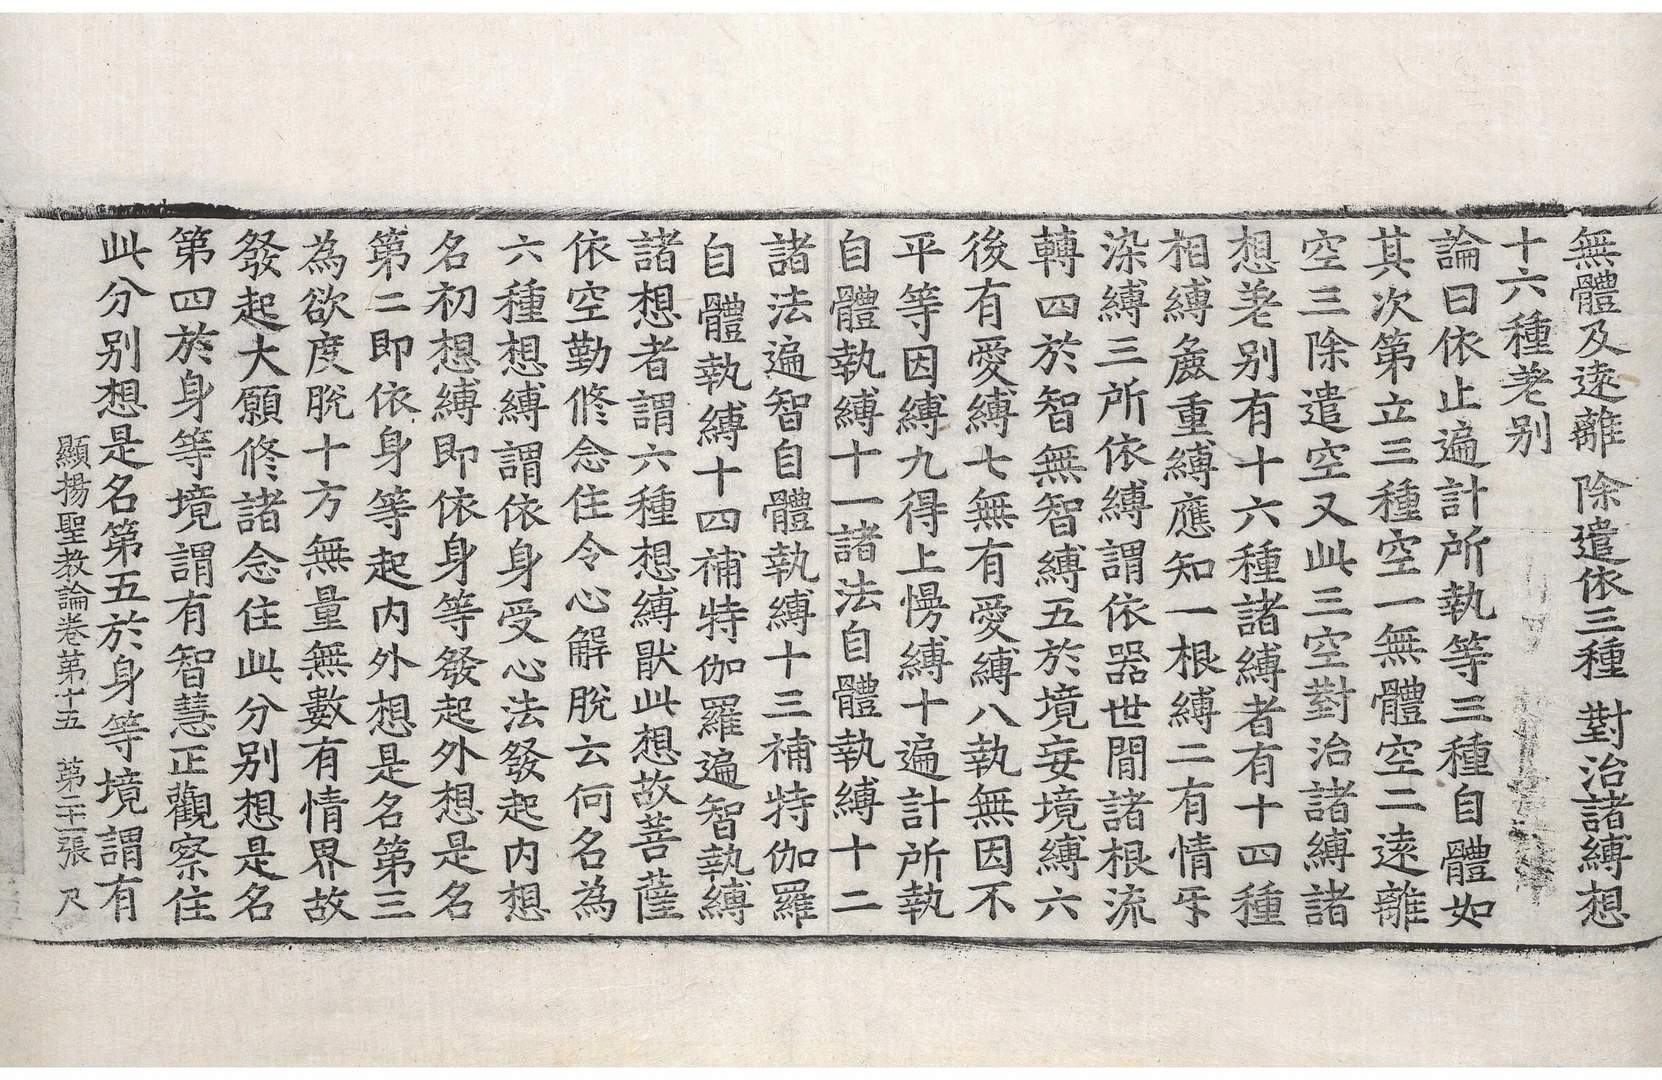 無體及遠離 除遣依三種 對治諸縛想
十六種差别
論曰依止遍計所執等三種自體如
其次第立三種空一無體空二遠離
空三除遣空又此三空對治諸縛諸
想差别有十六種諸縛者有十四種
相縛麁重縛應知一根縛二有情㸦
染縛三所依縛謂依器世間諸根流
轉四於智無智縛五於境妄境縛六
後有愛縛七無有愛縛八執無因不
平等因縛九得上慢縛十遍計所執
自體執縛十一諸法自體執縛十二
諸法遍智自體執縛十三補特伽羅
自體執縛十四補特伽羅遍智執縛
諸想者謂六種想縛猒此想故菩薩
依空勤修念住令心解脫云何名為
六種想縛謂依身受心法發起内想
名初想縛即依身等發起外想是名
第二即依身等起内外想是名第三
為欲度脫十方無量無數有情界故
發起大願修諸念住此分别想是名
第四於身等境謂有智慧正觀察住
此分别想是名第五於身等境謂有
顯揚聖教論卷第十五 第二十一張 尺